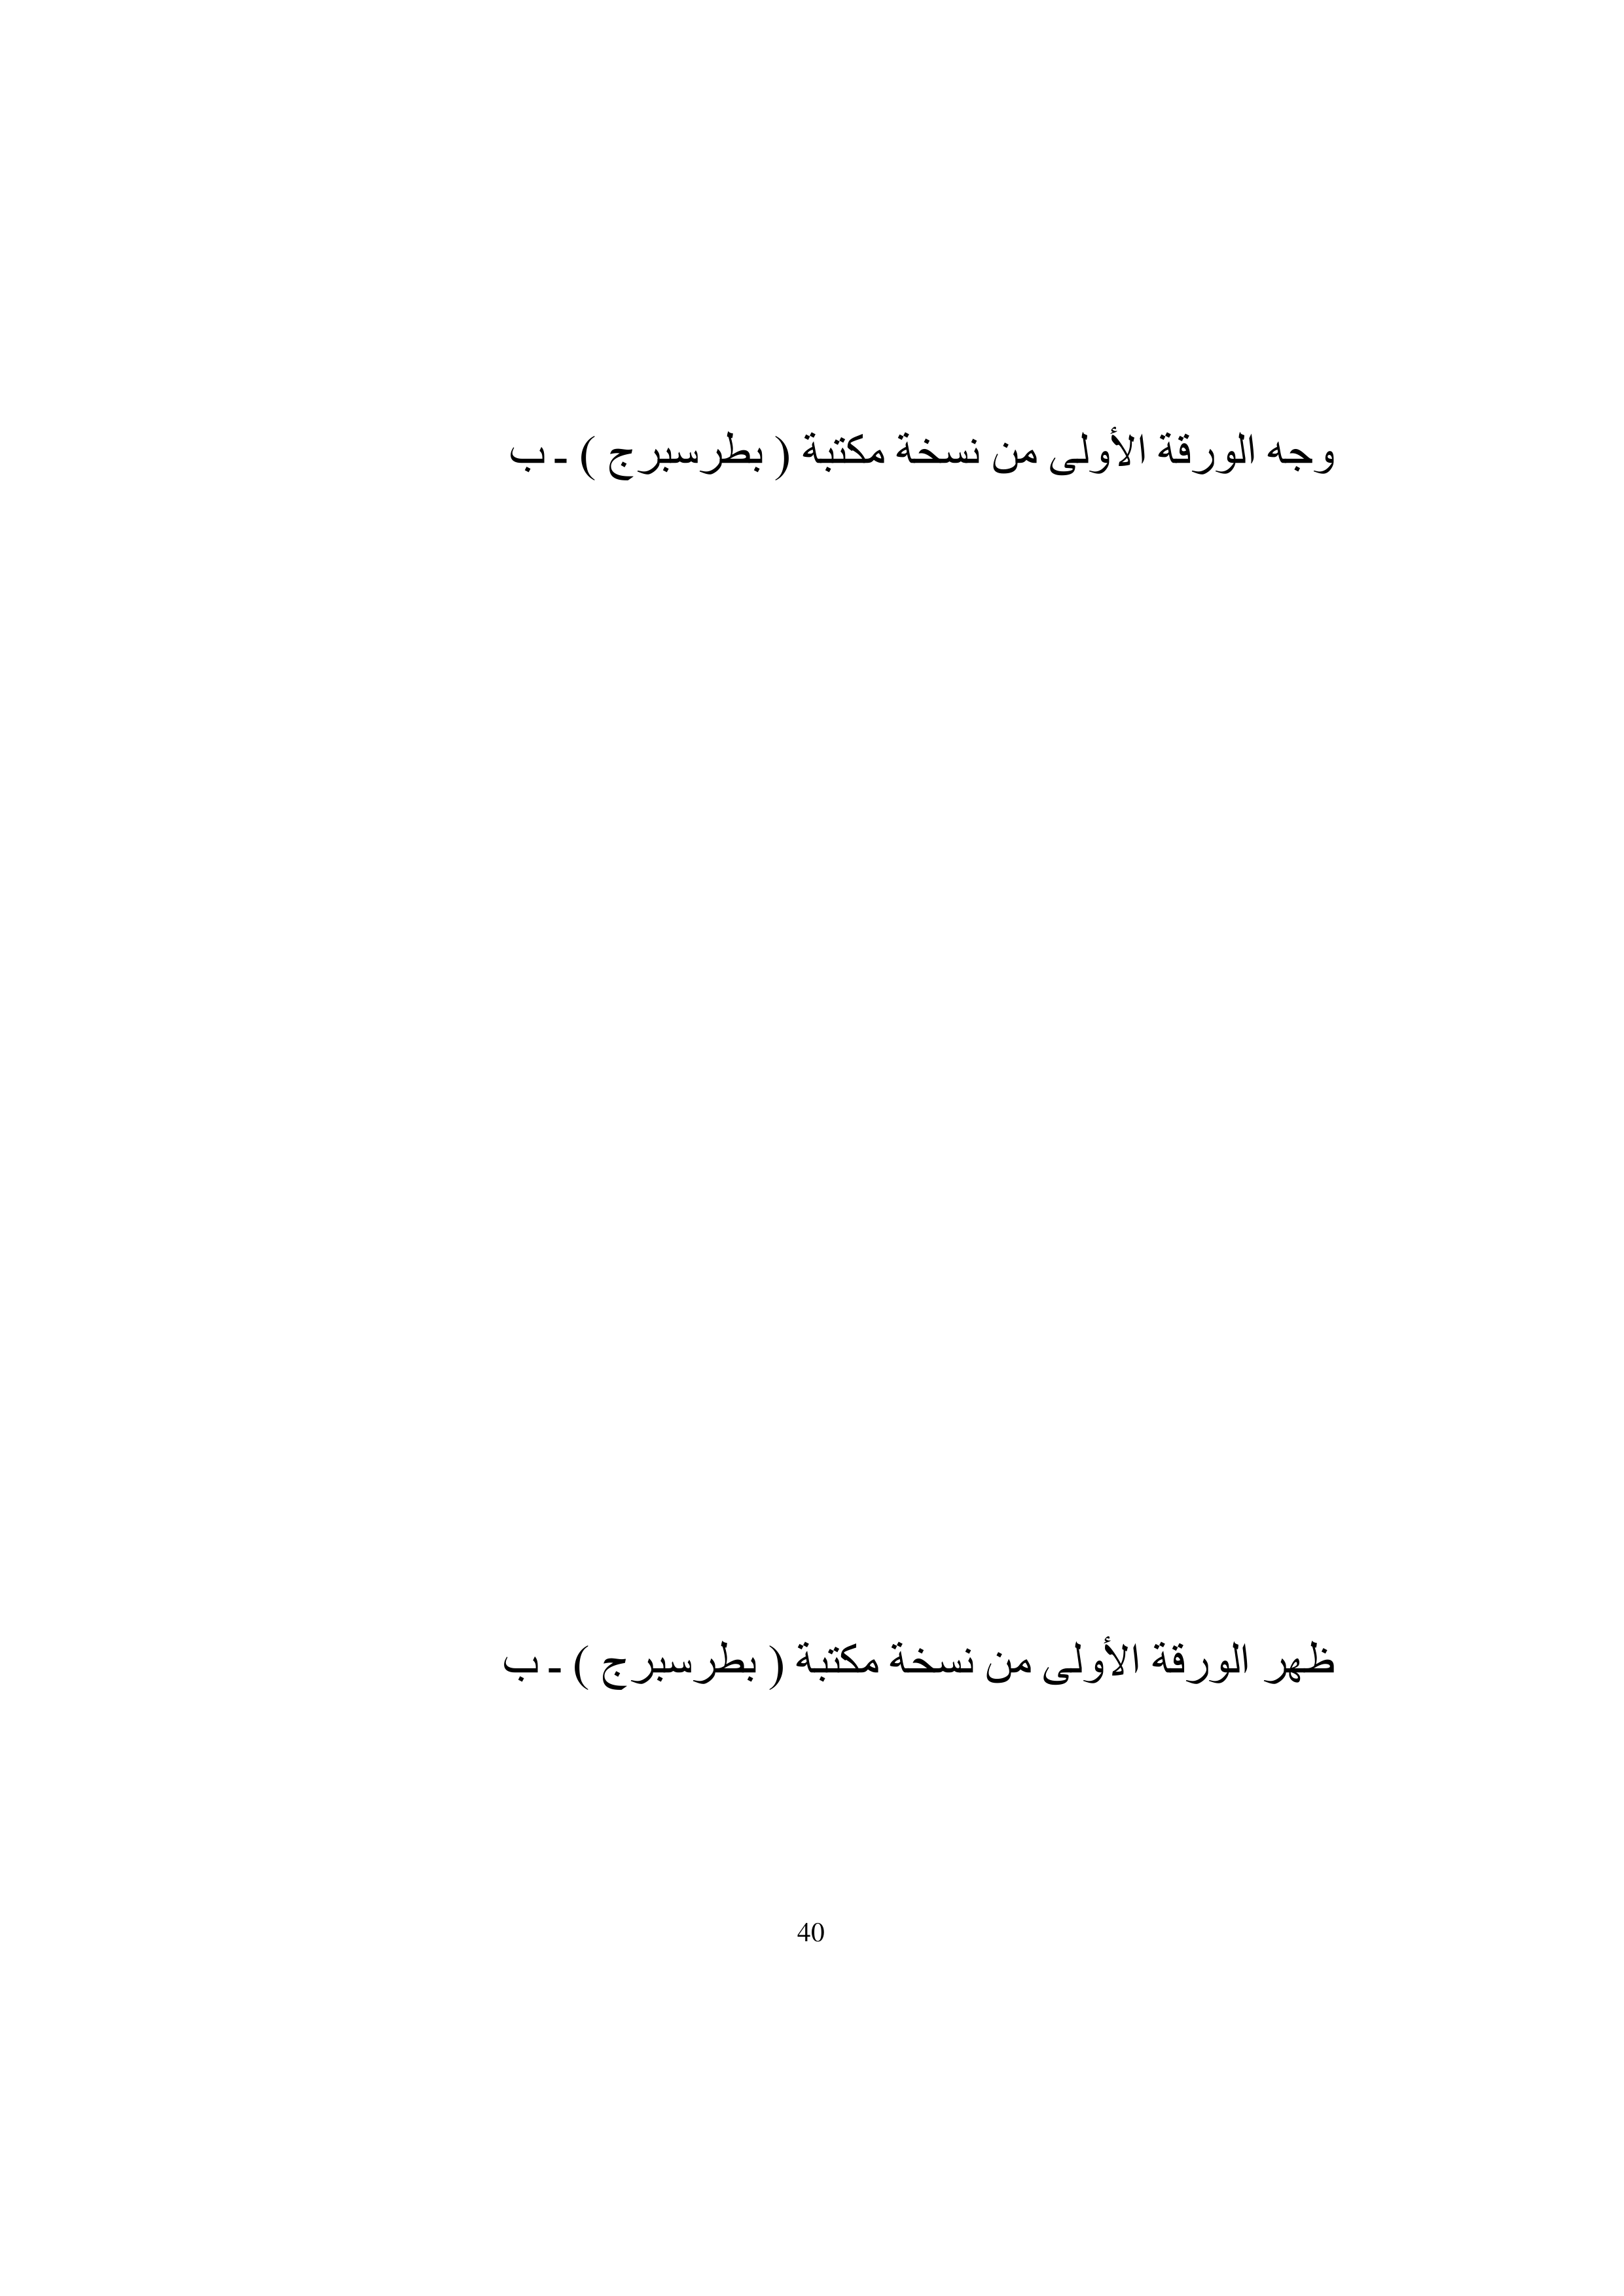 وجه الورقة الأولى من نسخة مكتبة ( بطرسبرج ) ـ ب
ظهر الورقة الأولى من نسخة مكتبة ( بطرسبرج ) ـ ب
40